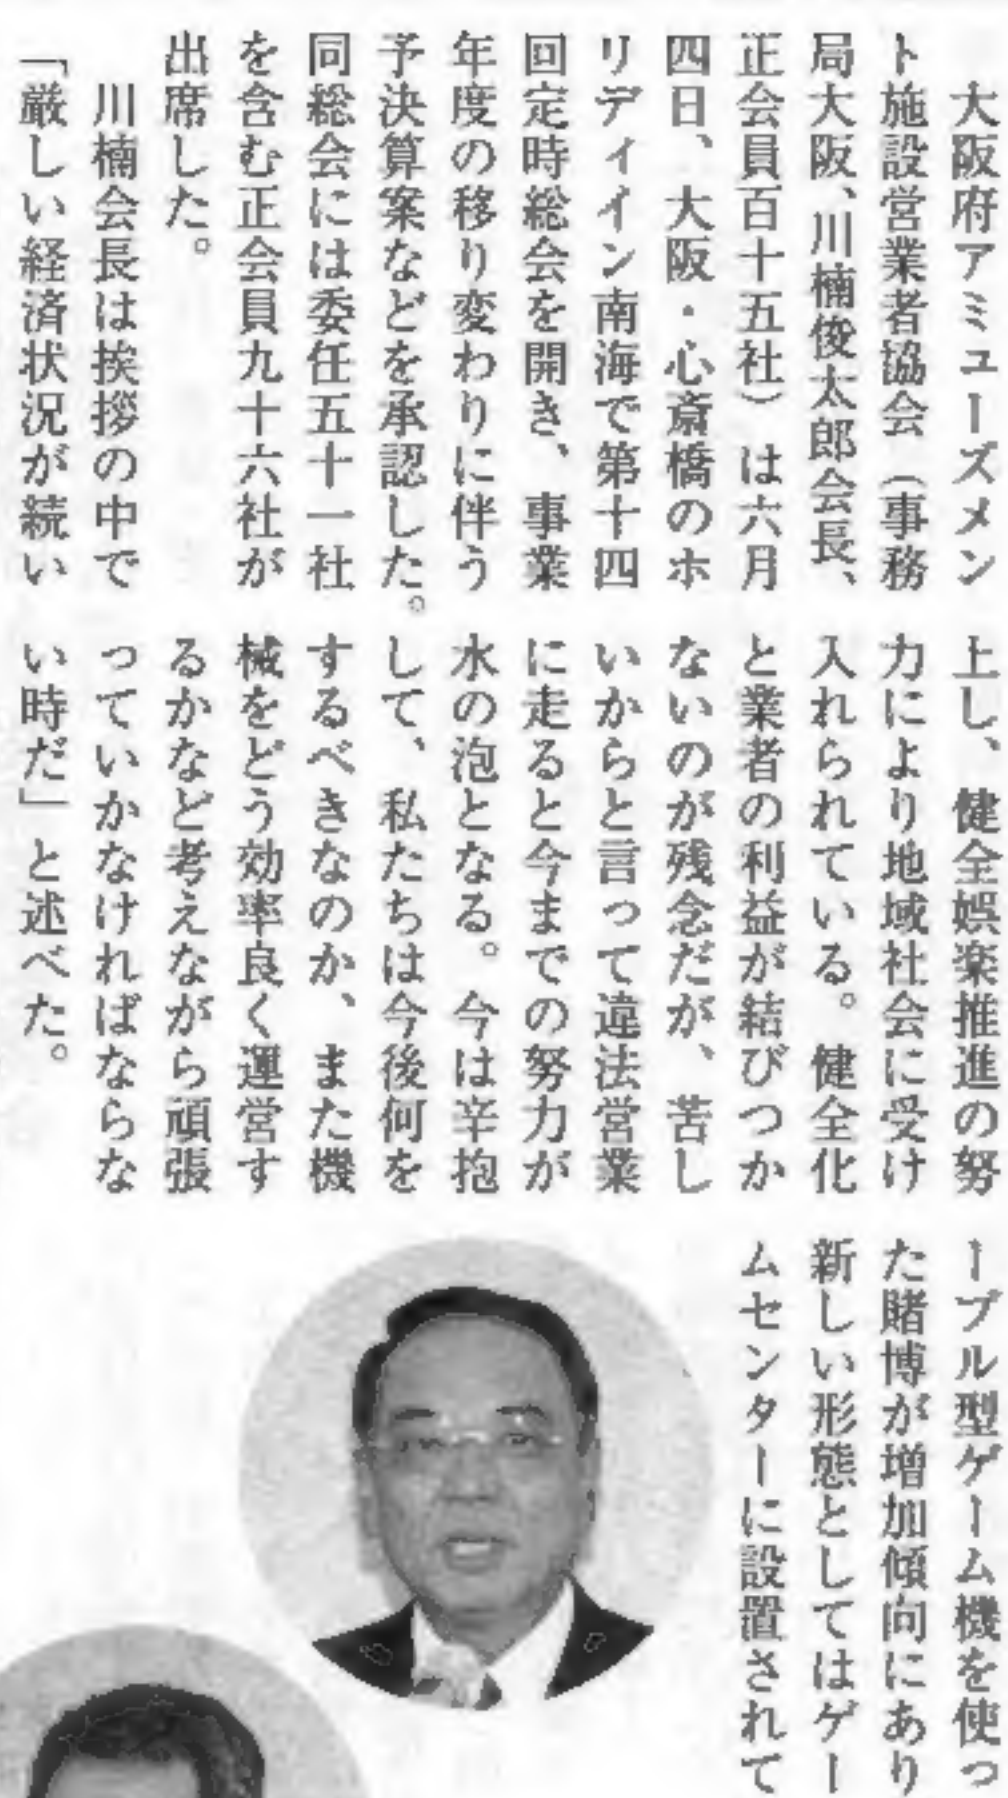 大阪府アミューズメン
ト施設営業者協会（事務
局大阪、川楠俊太郎会長、
正会員百十五社）は六月
四日、大阪・心斎橋のホ
リディイン南海で第十四
回定時総会を開き、事業
年度の移り変わりに伴う
予決算案などを承認した。
同総会には委任五十一社
を含む正会員九十六社が
出席した。
川楠会長は挨拶の中で
「厳しい経済状況が続い
上し、健全娯楽推進の努
力により地域社会に受け
入れられている。健全化
と業者の利益が結びつか
ないのが残念だが、苦し
いからと言って違法営業
に走ると今までの努力が
水の泡となる。今は辛抱
して、私たちは今後何を
するべきなのか、また機
械をどう効率良く運営す
るかなど考えながら頑張
っていかなければならな
い時だ」と述べた。
ーブル型ゲーム機を使っ
た賭博が増加傾向にあり
新しい形態としてはゲー
ムセンターに設置されて